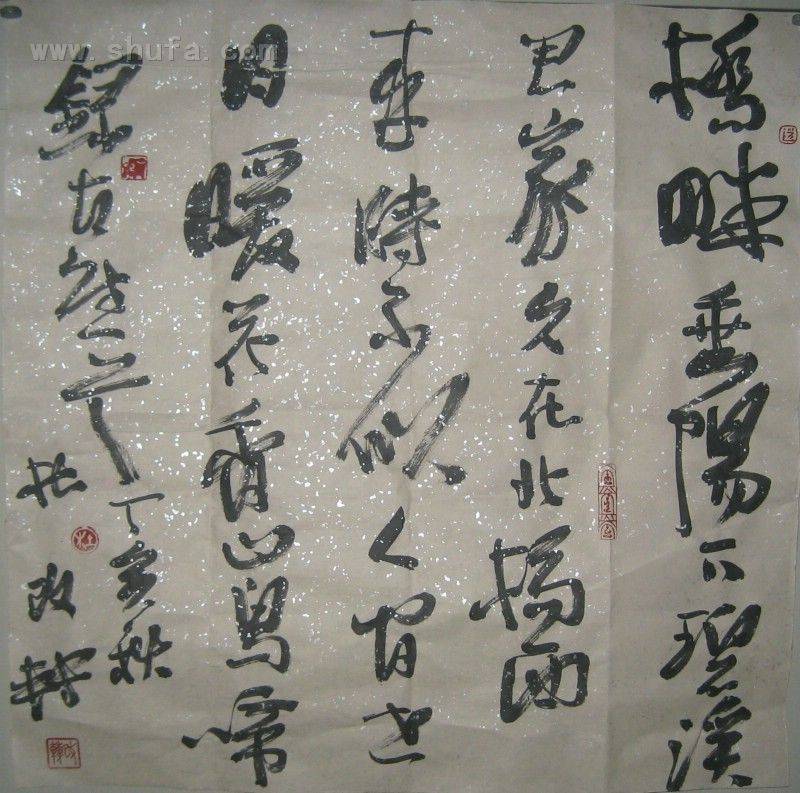 www.shufa.com
橋畔垂陽下碧溪
君家久在北橋西
来時不似人間世
日暖花香山鳥啼
錄古絶一首
丁亥秋